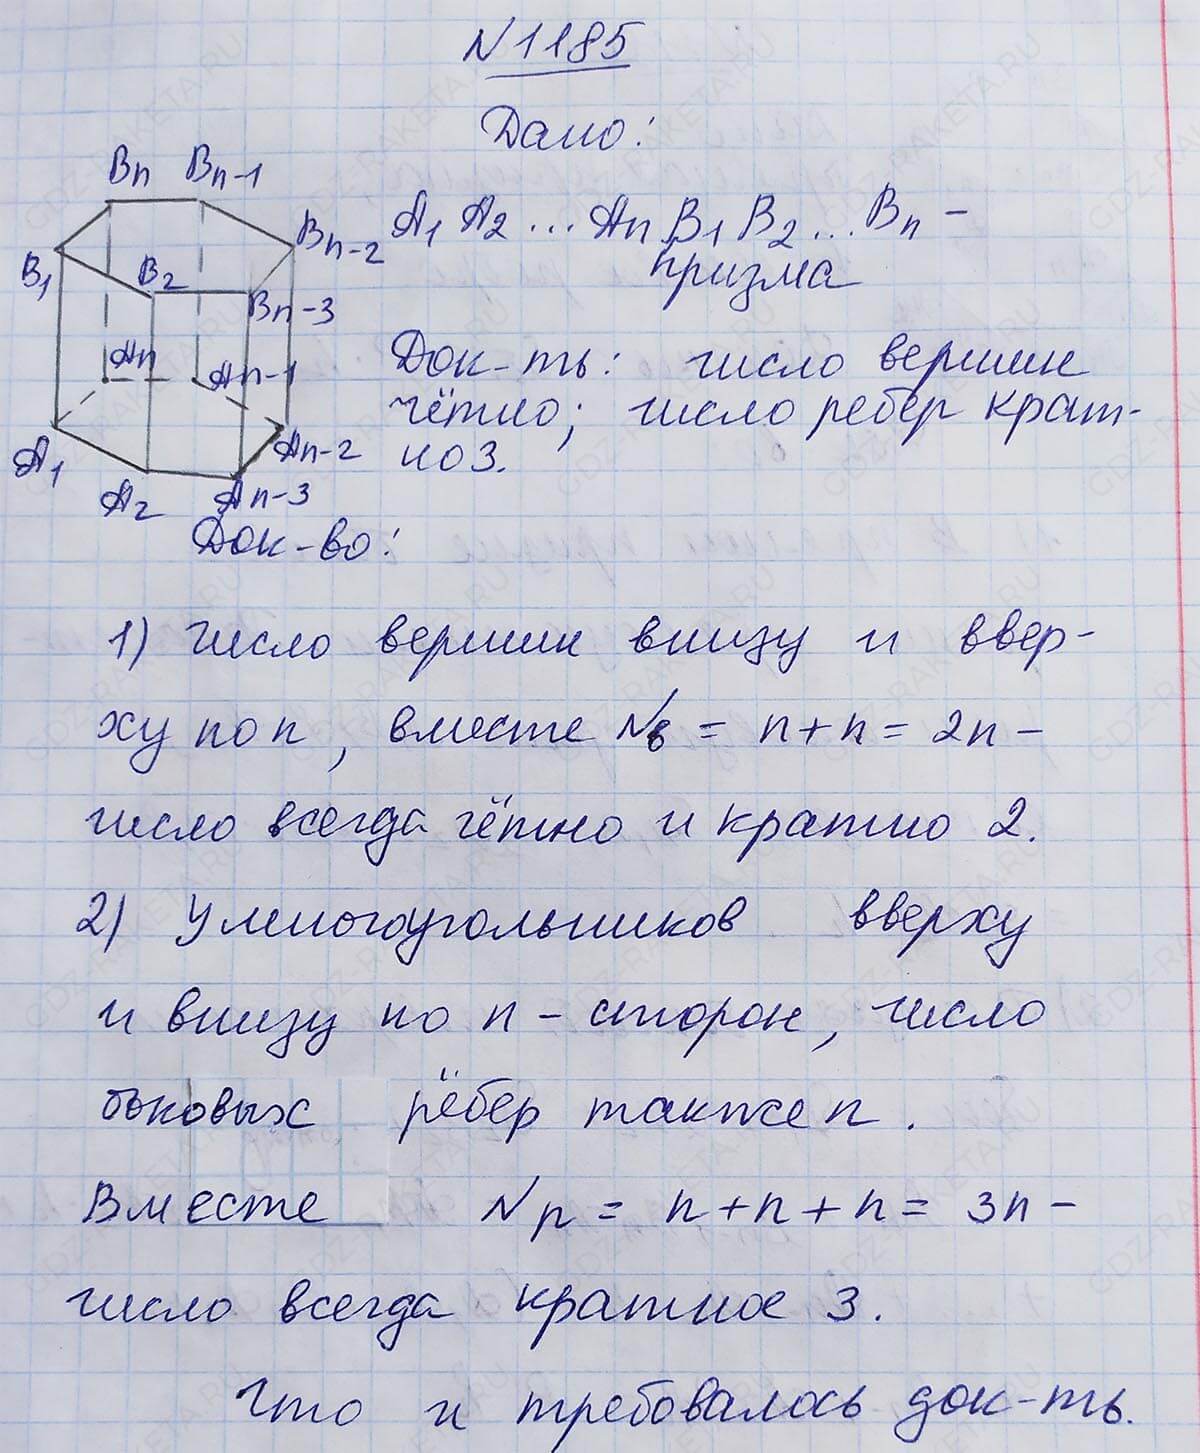 N1185
Дано:
Bn Bn-1
A1 A2 ... An B1 B2 ... Bn -
Bn-2
B1 B2
призма
Bn-3
An
Док-ть: число вершин
An-1
чётно; число ребер крат-
An-2
но 3.
A1
A2 An-3
Док-во:
1) Число вершин внизу и ввер-
ху по n, вместе Nв = n+n = 2n -
число всегда чётно и кратно 2.
2) У многоугольников вверху
и внизу по n - сторон, число
боковых рёбер также n.
Вместе Nр = n+n+n = 3n -
число всегда кратное 3.
Что и требовалось док-ть.
GDZ-RAKETA.RU